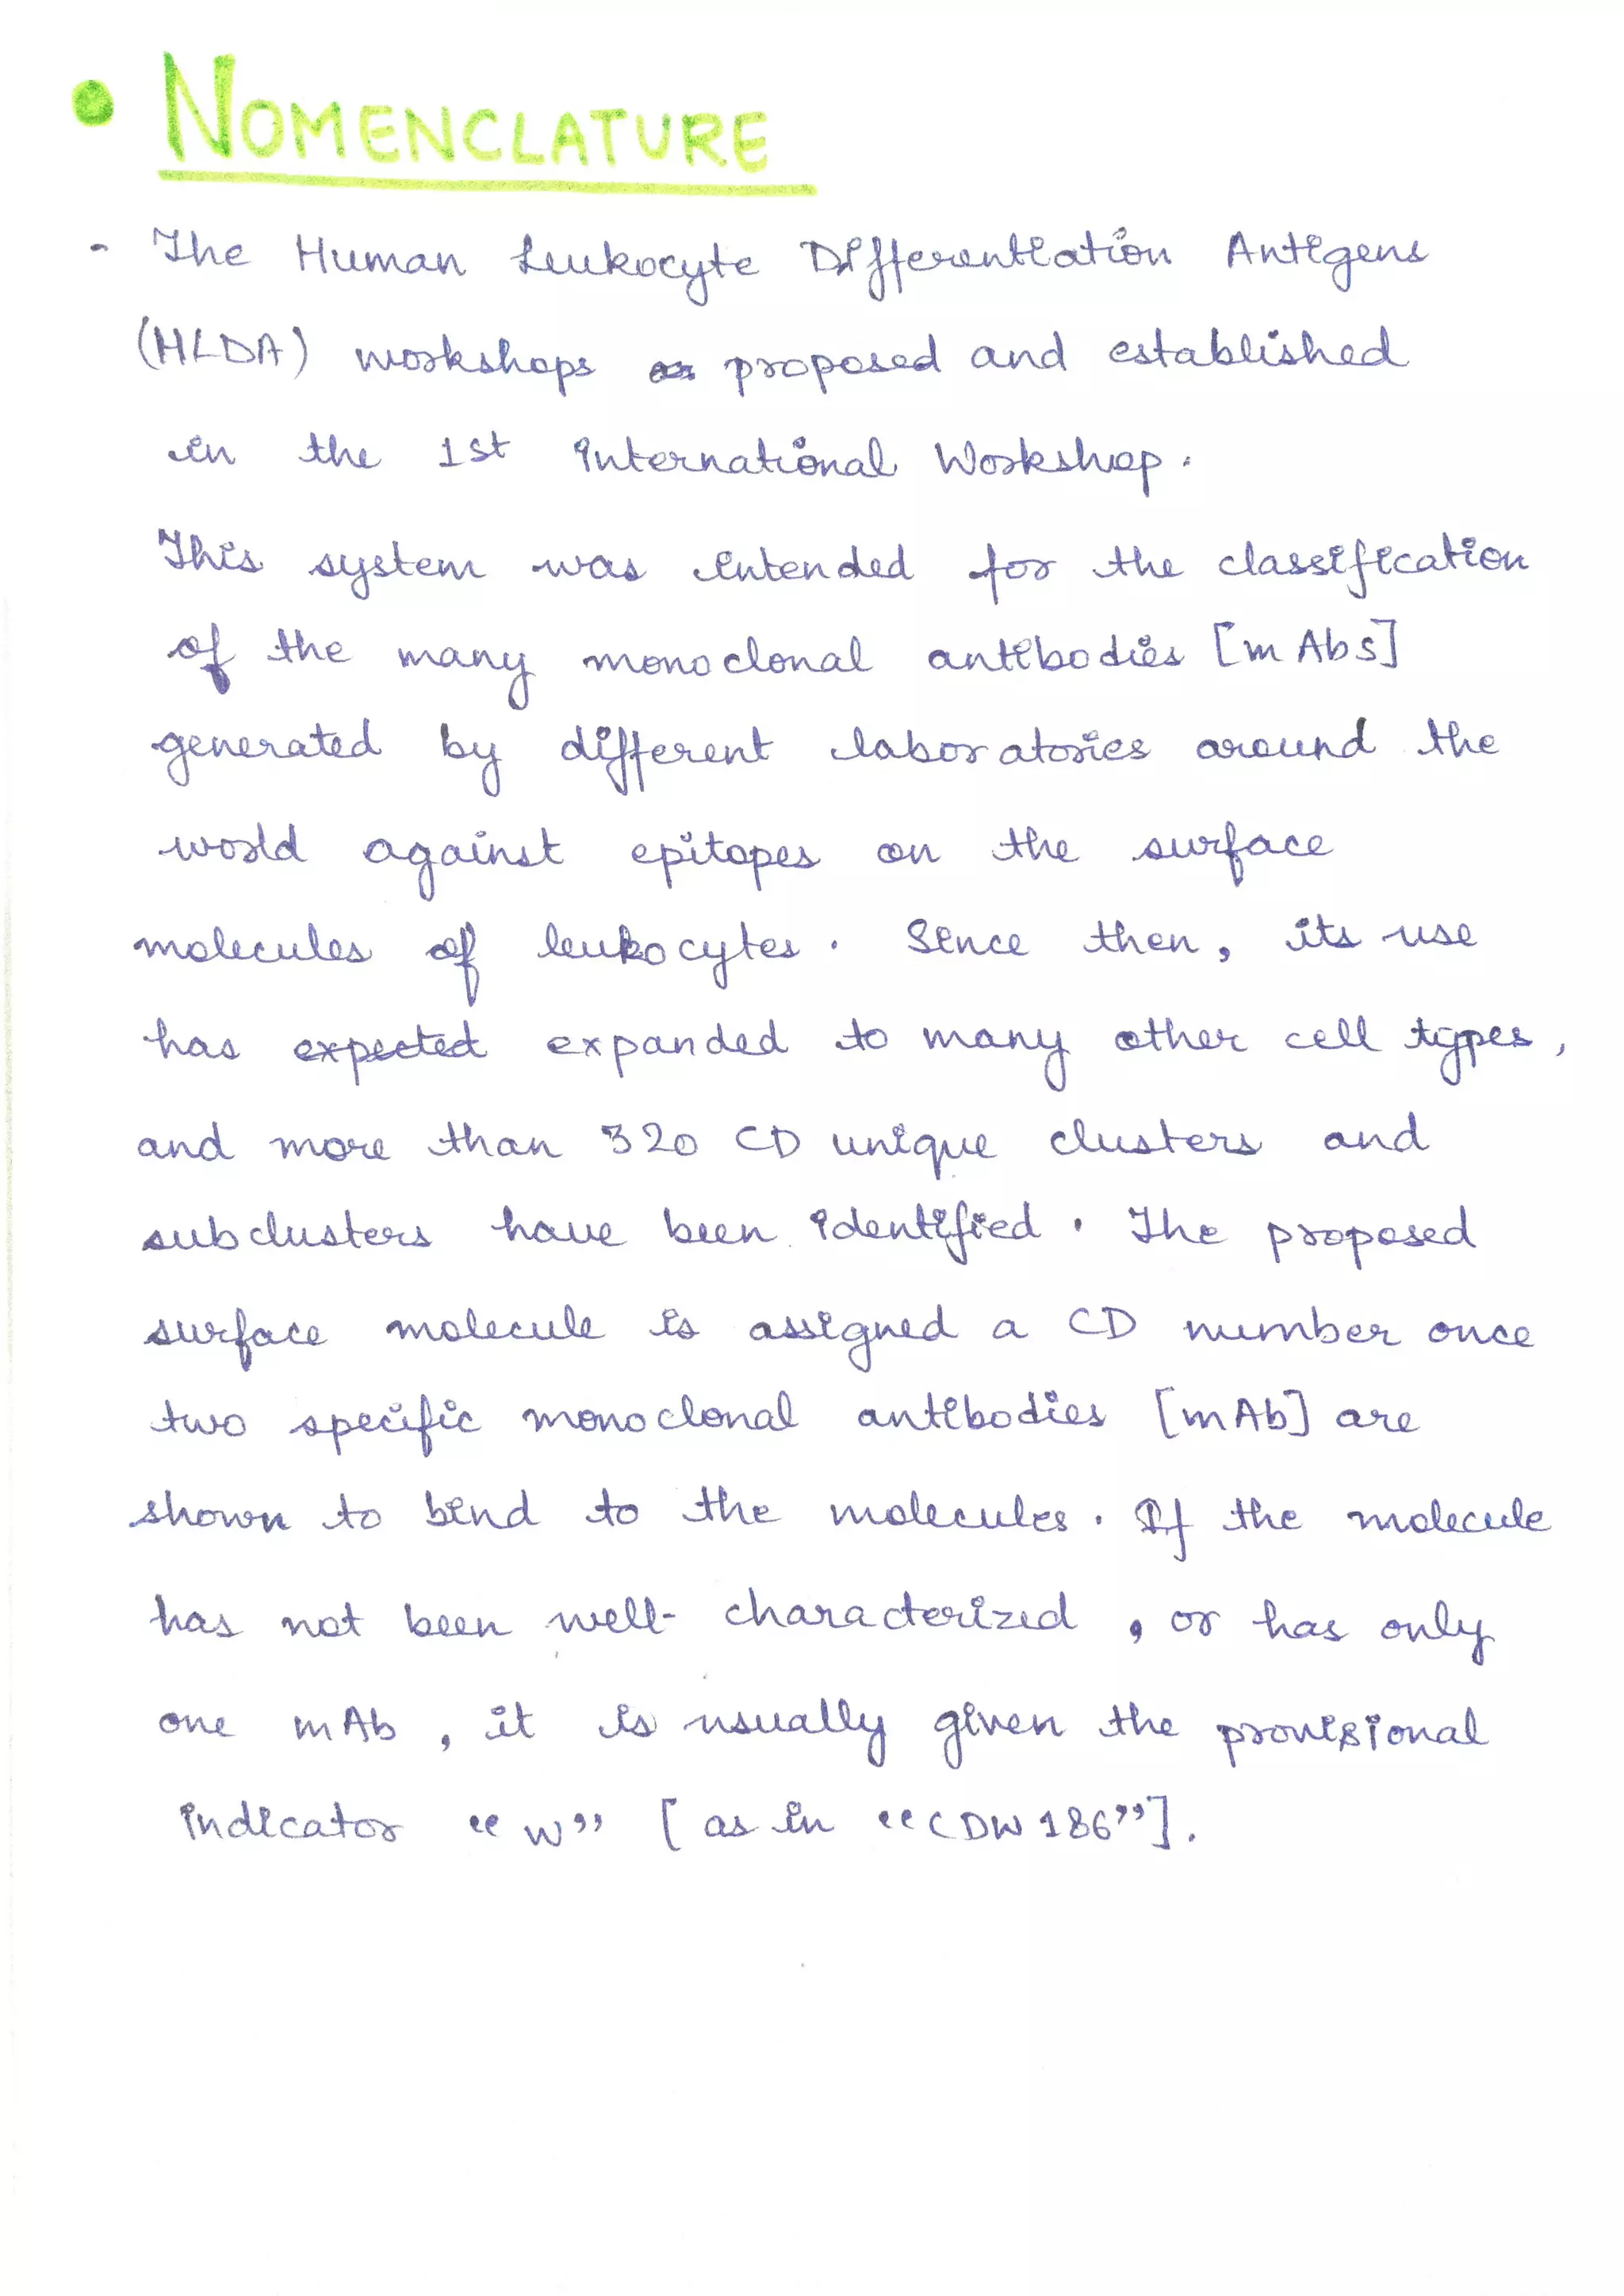 • NOMENCLATURE
- The Human Leukocyte Differentiation Antigens
(HLDA) workshops proposed and established
in the 1st International Workshop.
This system was intended for the classification
of the many monoclonal antibodies [mAbs]
generated by different laboratories around the
world against epitopes on the surface
molecules of leukocytes. Since then, its use
has expected expanded to many other cell types,
and more than 320 CD unique clusters and
subclusters have been identified. The proposed
surface molecule is assigned a CD number once
two specific monoclonal antibodies [mAb] are
shown to bind to the molecules. If the molecule
has not been well-characterized, or has only
one mAb, it is usually given the provisional
indicator "W" [as in "CDW186"].